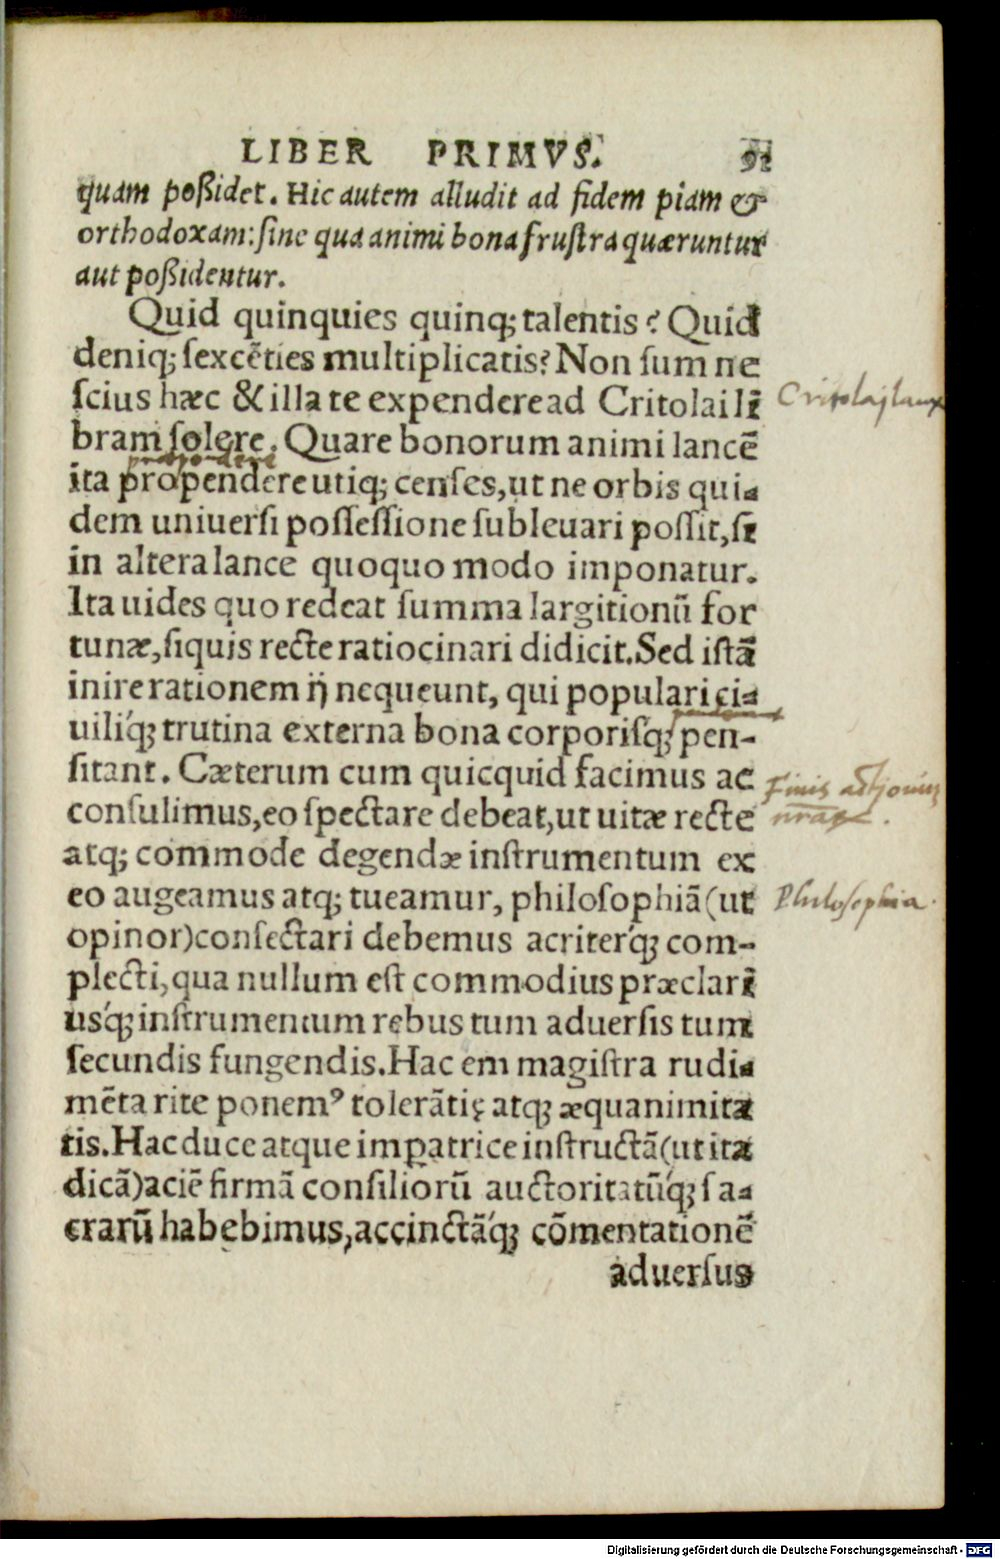 LIBER PRIMVS. 91
quam poßidet. Hic autem alludit ad fidem piam &
orthodoxam: ſine qua animi bona fruſtra quæruntur
aut poßidentur.
Quid quinquies quinq; talentis? Quid
deniq; ſexcẽties multiplicatis? Non ſum ne
ſcius hæc & illa te expendere ad Critolai li
Critolaj lanx
bram ſolere. Quare bonorum animi lancẽ
ita propendere utiq; cenſes, ut ne orbis qui-
dem uniuerſi poſſeſſione ſubleuari poſſit, ſi
in altera lance quoquo modo imponatur.
Ita uides quo redeat ſumma largitionũ for
tunæ, ſiquis recte ratiocinari didicit. Sed iſtã
inire rationem ij nequeunt, qui populari ci-
uiliq́; trutina externa bona corporiſq́; pen-
ſitant. Cæterum cum quicquid facimus ac
Finis actionũ
conſulimus, eo ſpectare debeat, ut uitæ recte
nrãꝝ.
atq; commode degendæ inſtrumentum ex
eo augeamus atq; tueamur, philoſophiã (ut
Philosophia.
opinor) conſectari debemus acriterq́; com-
plecti, qua nullum eſt commodius præclari
uſq́; inſtrumentum rebus tum aduerſis tum
ſecundis fungendis. Hac em magiſtra rudi-
mẽta rite ponemꝰ tolerãtię atq; æquanimita
tis. Hac duce atque impatrice inſtructã (ut ita
dicã) aciẽ firmã conſiliorũ auctoritatũq́; ſa-
crarũ habebimus, accinctãq́; cõmentationẽ
aduerſus
Digitalisierung gefördert durch die Deutsche Forschungsgemeinschaft - DFG